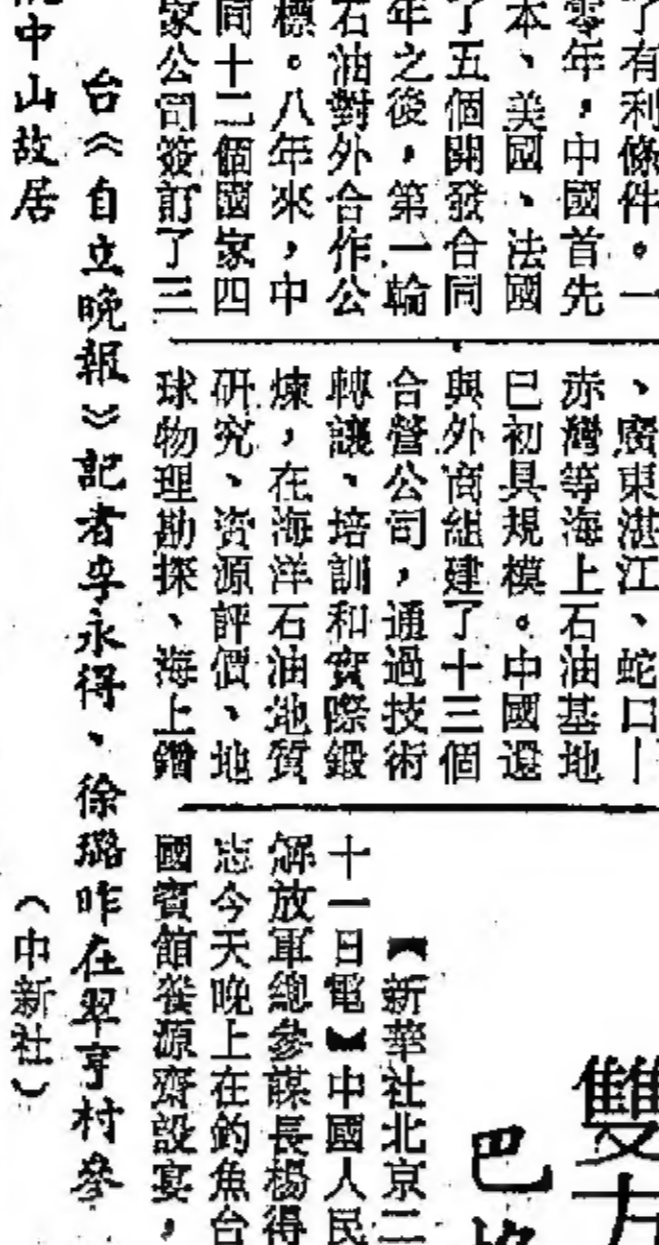 了有利條件。一
零年，中國首先
本、美國、法國
了五個開發合同
年之後，第一輪
石油對外合作公
標。八年來，中
同十二個國家四
家公司簽訂了三
、廣東湛江、蛇口—
赤灣等海上石油基地
已初具規模。中國還
與外商組建了十三個
合營公司，通過技術
轉讓、培訓和實際鍛
煉，在海洋石油地質
研究、資源評價、地
球物理勘探、海上鑽
雙方
巴
【新華社北京二
十一日電】中國人民
解放軍總參謀長楊得
志今天晚上在釣魚台
國賓館養源齋設宴，
台《自立晚報》記者李永得、徐璐昨在翠亨村參
中山故居
（中新社）